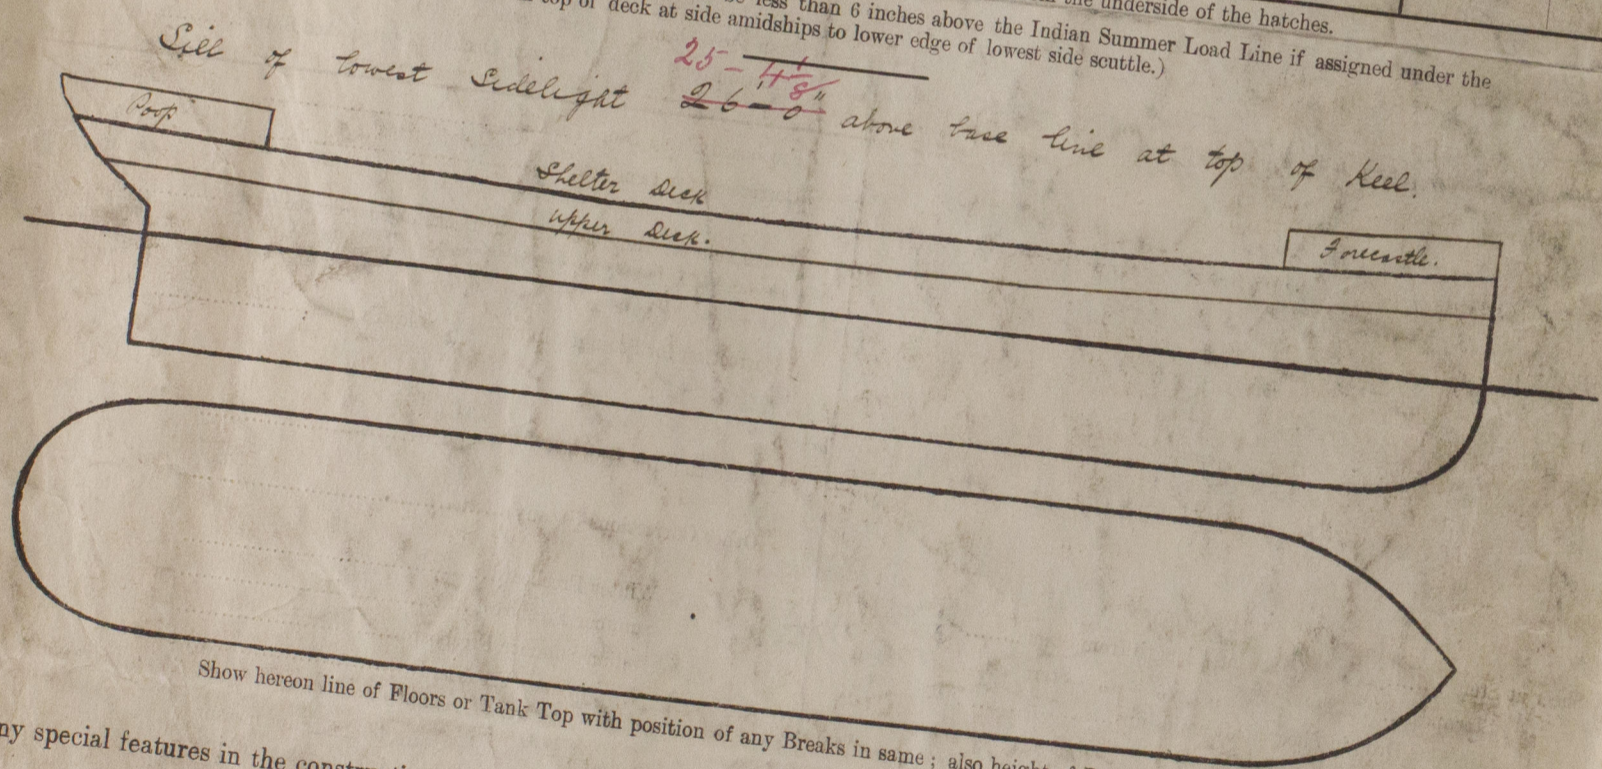 underside of the hatches.
less than 6 inches above the Indian Summer Load Line if assigned under the
deck at side amidships to lower edge of lowest side scuttle.)
25 - 4 1/8
Sill of lowest Sidelight 26'-0" above base line at top of Keel.
Poop
Shelter Deck
upper Deck.
Forecastle.
Show hereon line of Floors or Tank Top with position of any Breaks in same; also
ny special features in the